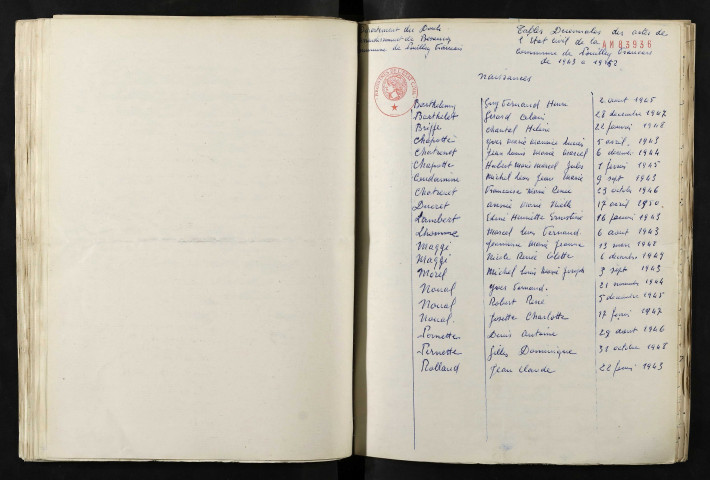 Département du Doubs
arrondissement de Besançon
commune de Pouilley Français
Tables Décennales des actes de
l'Etat civil de la
AMB3936
commune de Pouilley Français
de 1943 à 1952
Naissances
Barthelemy Guy Fernand Henri 2 aout 1945
Barthelet Gerard Alain 28 decembre 1947
Briffe Chantal Helène 22 janvier 1948
Chapotte Yves Marie Maurice Lucien 5 avril 1943
Chatrenet Jean Louis Marie Marcel 6 decembre 1944
Chapotte Hubert Marie Marcel Jules 1 fevrier 1945
Condamine Michel Leon Jean Marie 9 sept 1943
Chatrenet Francoise Marie Renee 23 octobre 1946
Ducret Annie Marie 17 avril 1950
Lambert Henriette Ernestine 16 janvier 1943
Lhomme Marcel Leon Fernand 6 aout 1943
Maggi Jeannine Marie Jeanne 13 mars 1948
Maggi Nicole Renée Colette 6 decembre 1949
Morel Michel Louis Marie Joseph 3 sept 1943
Noual Yves Fernand. 21 novembre 1944
Noual Robert René 5 decembre 1945
Noual. Josette Charlotte 17 fevrier 1947
Pernette Denis Antoine 29 aout 1946
Pernotte Gilles Dominique 31 octobre 1948
Rolland Jean Claude 22 fevrier 1943